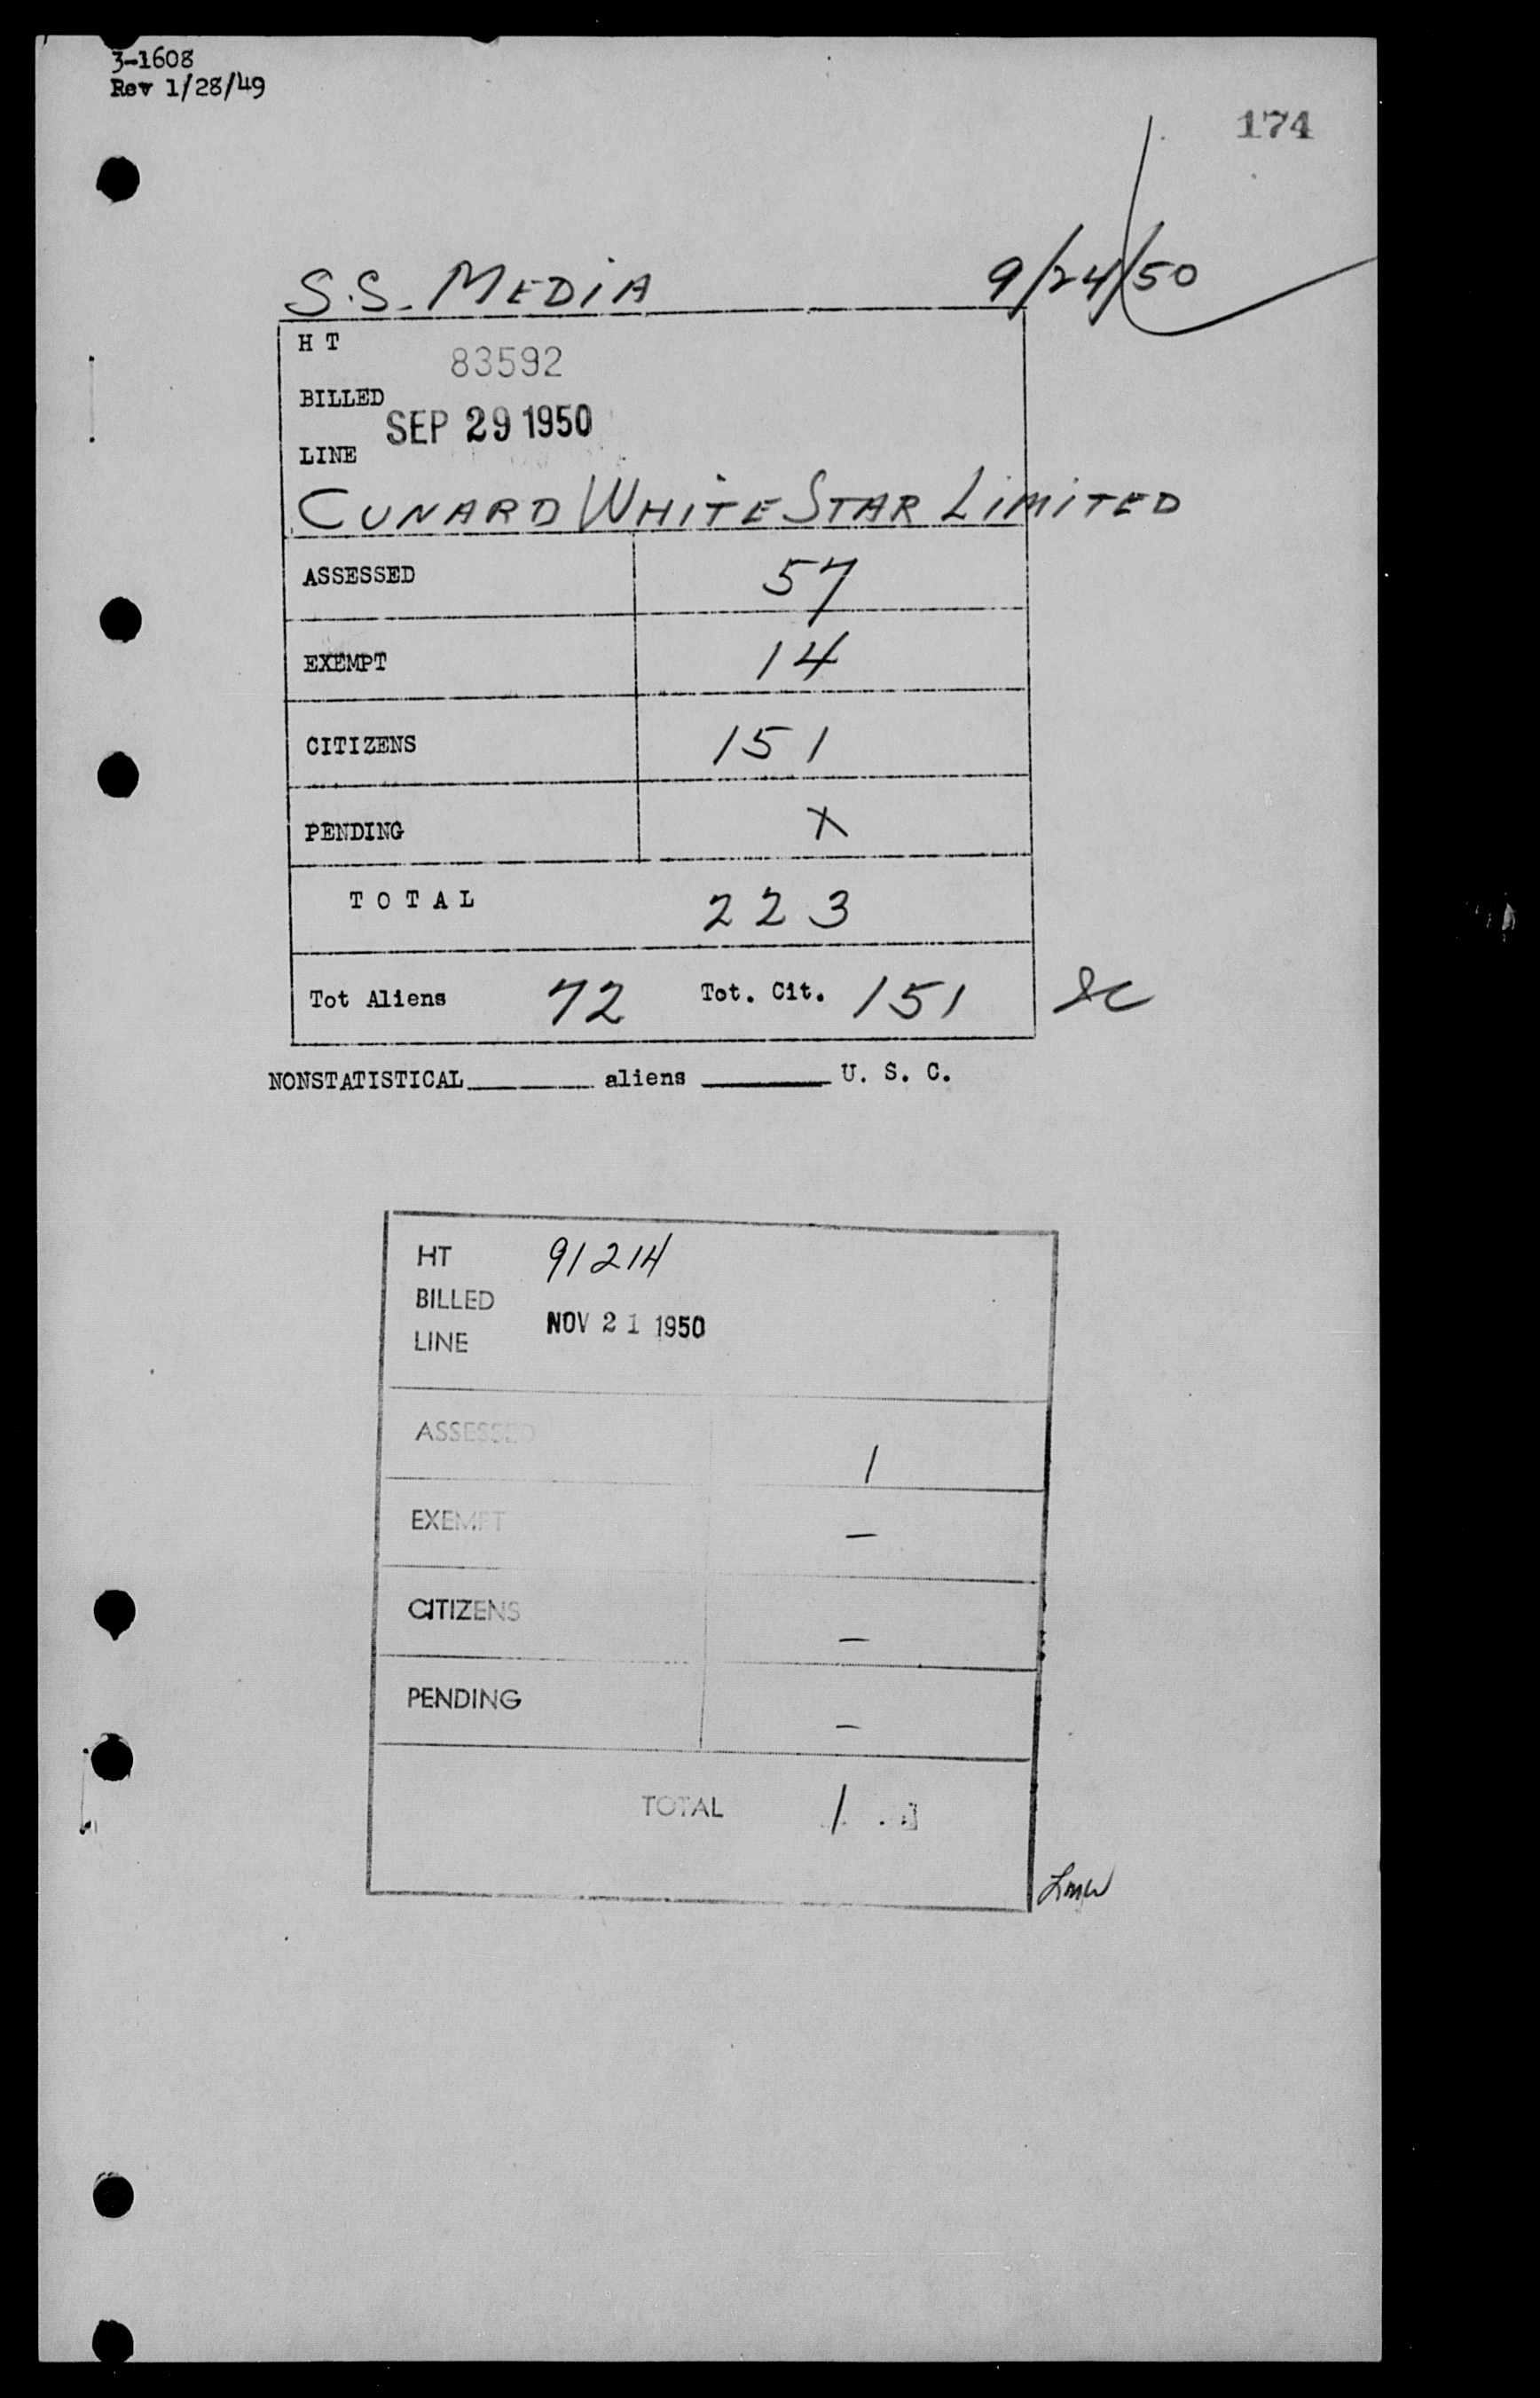 3-1608
Rev 1/28/49
174
S.S. MEDIA 9/24/50
H T 83592
BILLED
SEP 29 1950
LINE
CUNARD WHITE STAR LIMITED
ASSESSED 57
EXEMPT 14
CITIZENS 151
PENDING X
T O T A L 223
Tot Aliens 72 Tot. Cit. 151
NONSTATISTICAL________ aliens ________ U. S. C.
HT 91214
BILLED
NOV 21 1950
LINE
ASSESSED 1
EXEMPT –
CITIZENS –
PENDING –
TOTAL 1